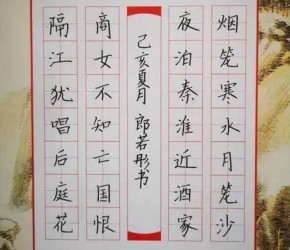 烟笼寒水月笼沙
夜泊秦淮近酒家
商女不知亡国恨
隔江犹唱后庭花
己亥夏月 郎若彤书